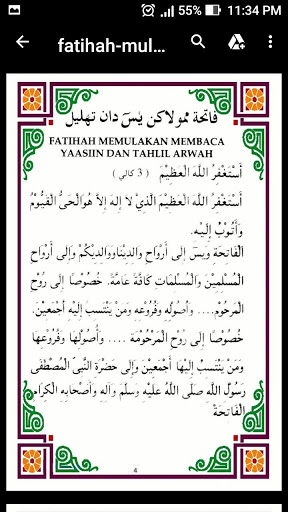 55% 11:34 PM
fatihah-mul...
فاتحة ممولاكن يسٓ دان تهليل
FATIHAH MEMULAKAN MEMBACA
YAASIIN DAN TAHLIL ARWAH
أَسْتَغْفِرُ اللَّهَ الْعَظِيْمَ ( 3 كالي )
أَسْتَغْفِرُ اللَّهَ الْعَظِيْمَ الَّذِيْ لاَ إِلَهَ إِلاَّ هُوَالْحَيُّ الْقَيُّوْمُ
وَأَتُوْبُ إِلَيْهِ.
الْفَاتِحَةَ وَيسٓ إِلَى أَرْوَاحِ وَالِدِيْنَاوَوَالِدِيْكُمْ وَإِلَى أَرْوَاحِ
الْمُسْلِمِيْنَ وَالْمُسْلِمَاتِ كَافَّةً عَامَّةً. خُصُوْصًا إِلَى رُوْحِ
الْمَرْحُوْمِ.... وَأُصُوْلِهِ وَفُرُوْعِهِ وَمَنْ يَنْتَسِبُ إِلَيْهِ أَجْمَعِيْنَ.
خُصُوْصًا إِلَى رُوْحِ الْمَرْحُوْمَةِ .... وَأُصُوْلِهَا وَفُرُوْعِهَا
وَمَنْ يَنْتَسِبُ إِلَيْهَا أَجْمَعِيْنَ وَإِلَى حَضْرَةِ النَّبِيِّ الْمُصْطَفَى
رَسُوْلِ اللَّهِ صَلَّى اللَّهُ عَلَيْهِ وَسَلَّمَ وَآلِهِ وَأَصْحَابِهِ الْكِرَامِ
الْفَاتِحَةَ
4